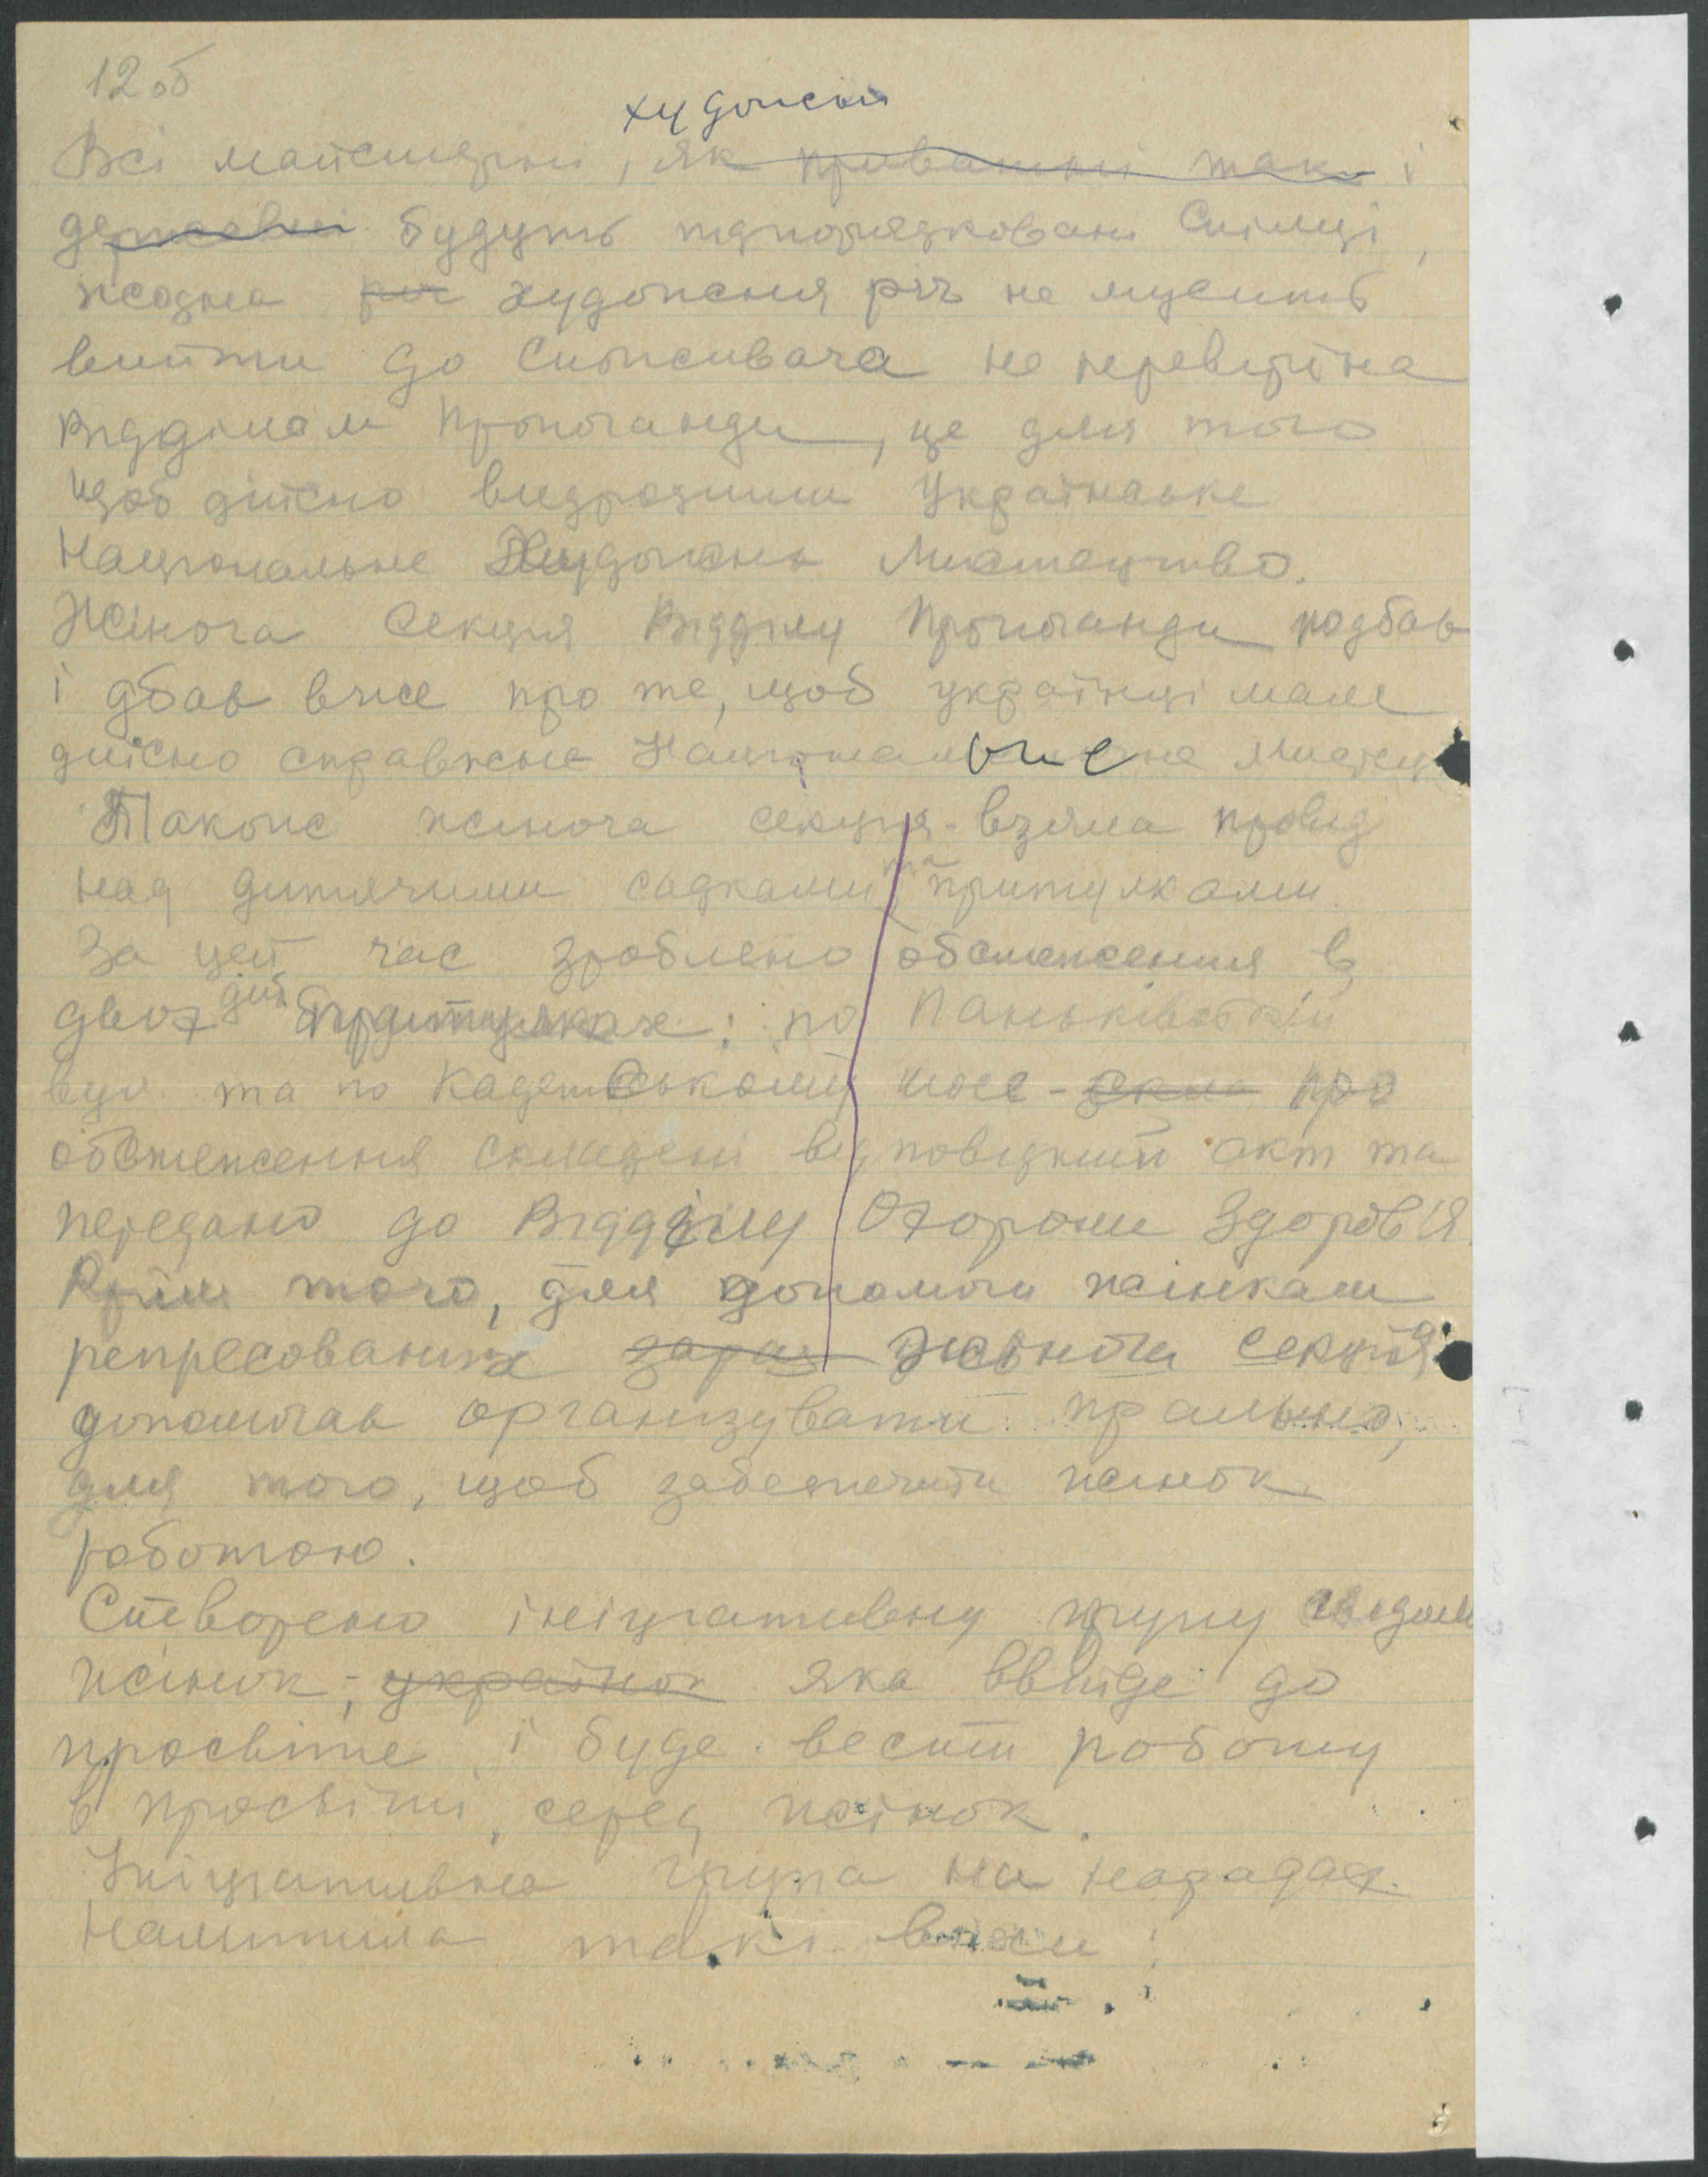 12об
художні
Всі майстерні, як приватні так і
державні будуть підпорядковані Спілці,
жодна річ художня річ не мусить
вийти до споживача не перевірена
Відділом Пропоганди, це для того
щоб дійсно видродити Українське
Національне Художнє Мистецтво.
Жіноча Секція Відділу Пропоганди подбав
і дбав вже про те, щоб українці мали
дійсно справжнє Національне Мистец
Також жіноча секція взяла провід
над дитячими садками та притулками.
За цей час зроблено обстеження в
двох дит. притулках: по Паньківській
вул. та по Кадетському шосе - про
обстеження складені відповідний акт та
передано до Відділу Охорони Здоров'я.
Крім того, для допомоги жінкам
репресованих зараз Жіноча Секція
допомогав організувати пральню,
для того, щоб забеспечити жінок
роботою.
Створено ініціативну групу свідом
жінок, українок яка ввійде до
просвіти і буде вести роботу
в просвіті, серед жінок.
Ініціативна група на нарадах
намітила такі